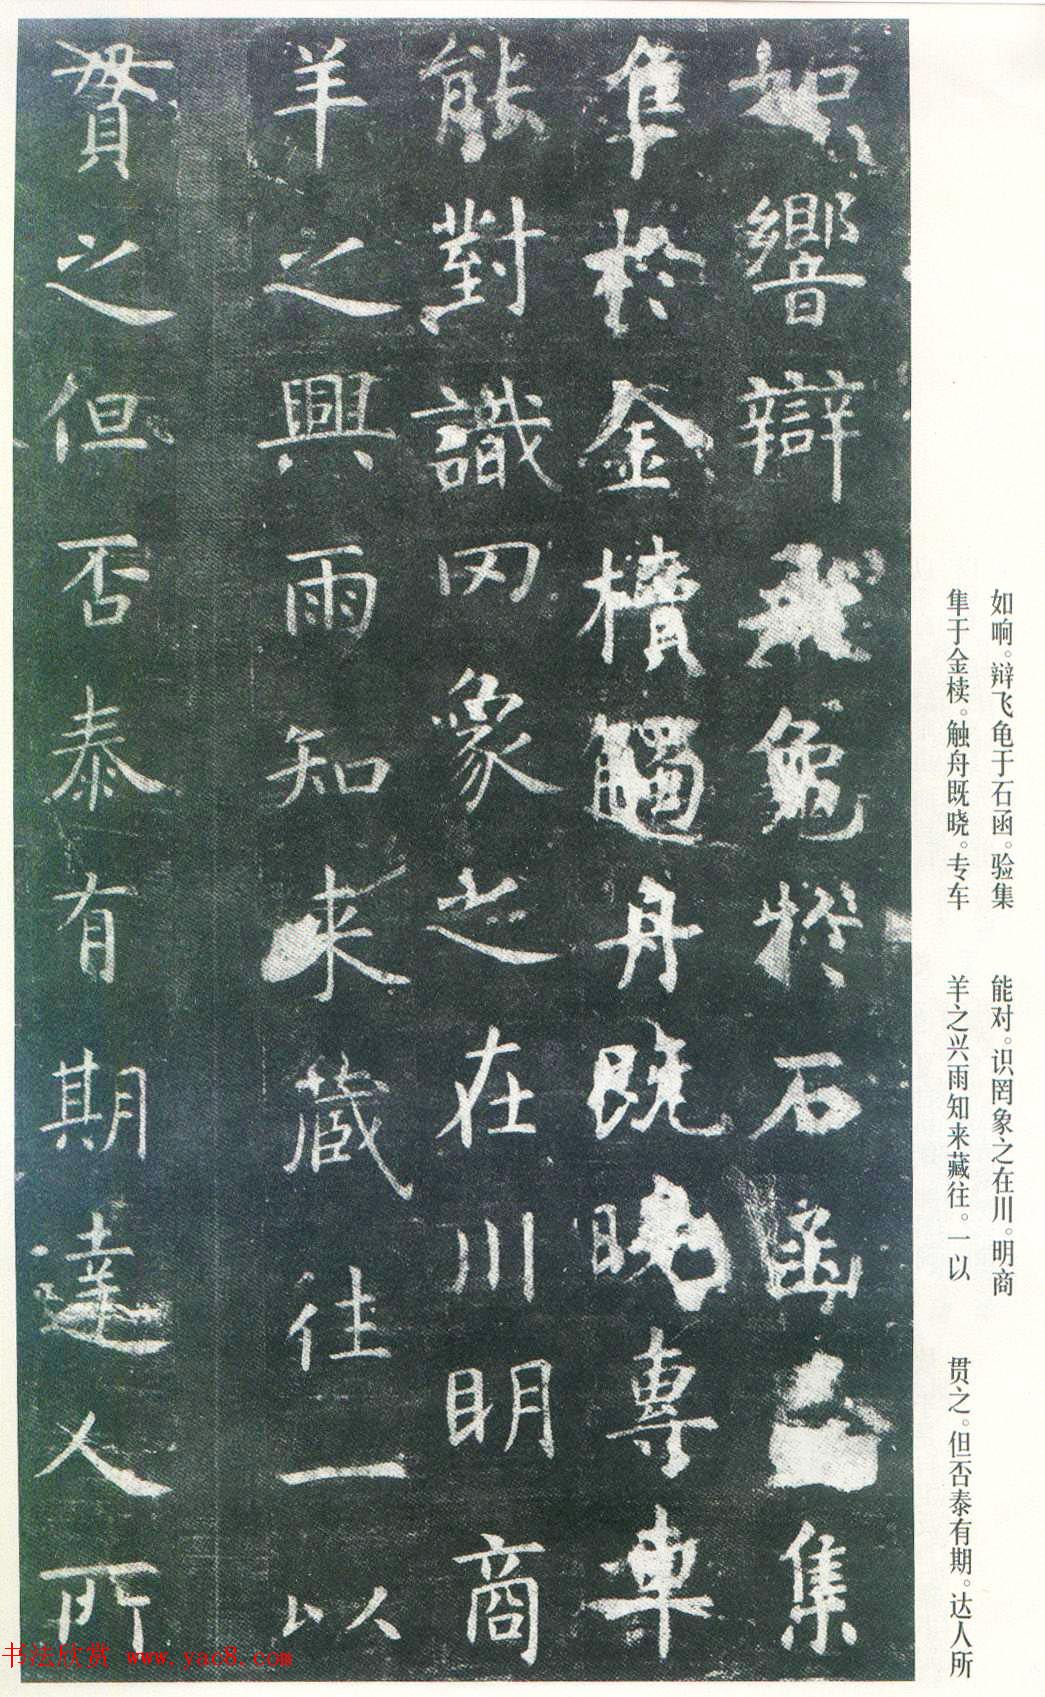 如響辯飛龜於石函
集
隼於金櫝觸舟既曉專車
能對識罔象之在川明商
羊之興雨知来蔵往一以
貫之但否泰有期達人所
如响。辩飞龟于石函。验集
隼于金椟。触舟既晓。专车
能对。识罔象之在川。明商
羊之兴雨知来藏往。一以
贯之。但否泰有期。达人所
书法欣赏 www.yac8.com